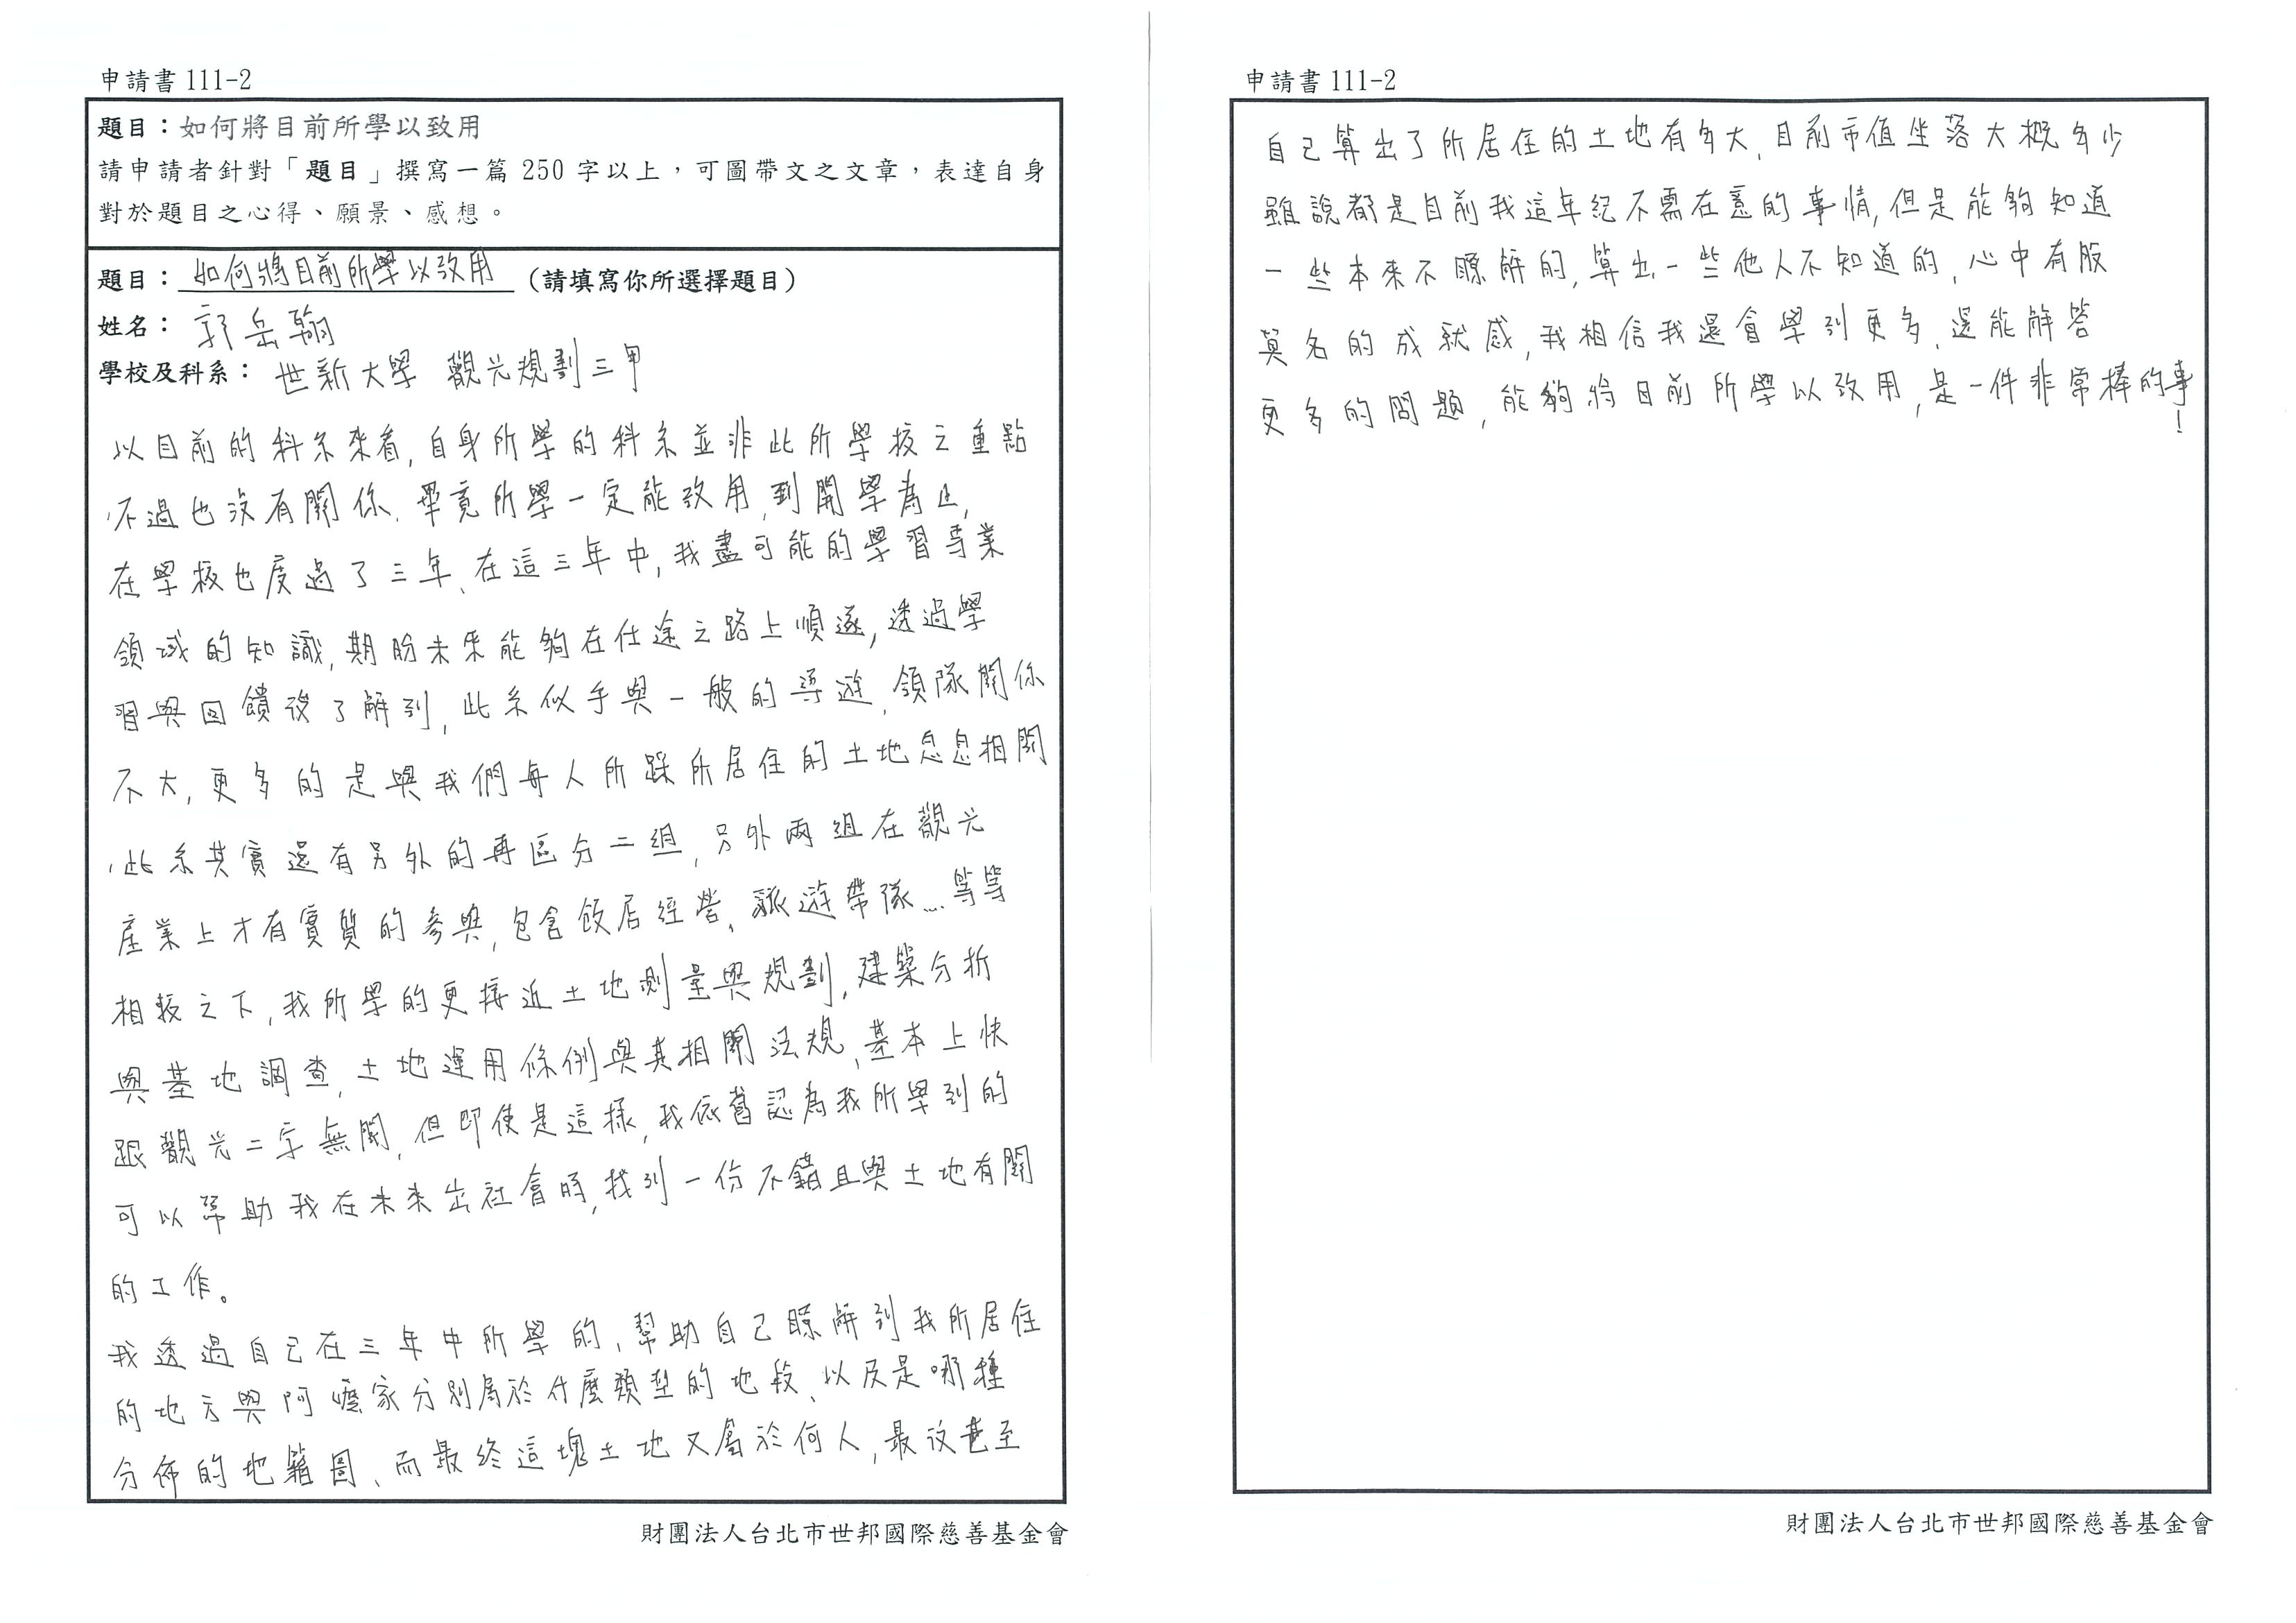 申請書 111-2
題目：如何將目前所學以致用
請申請者針對「題目」撰寫一篇 250 字以上，可圖帶文之文章，表達自身
對於題目之心得、願景、感想。
題目：如何將目前所學以致用（請填寫你所選擇題目）
姓名：郭岳翰
學校及科系：世新大學 觀光規劃三甲
以目前的科系來看,自身所學的科系並非此所學校之重點
,不過也沒有關係.畢竟所學一定能致用,到開學為止,
在學校也度過了三年、在這三年中,我盡可能的學習專業
領域的知識,期盼未來能夠在仕途之路上順遂,透過學
習與回饋後了解到,此系似乎與一般的導遊、領隊關係
不大,更多的是與我們每人所踩所居住的土地息息相關
,此系其實還有另外的再區分二組,另外兩組在觀光
產業上才有實質的參與,包含飯店經營、旅遊帶隊…等等
相較之下,我所學的更接近土地測量與規劃,建築分析
與基地調查,土地運用條例與其相關法規,基本上快
跟觀光二字無關,但即使是這樣,我依舊認為我所學到的
可以幫助我在未來出社會時,找到一份不錯且與土地有關
的工作。
我透過自己在三年中所學的,幫助自己瞭解到我所居住
的地方與阿嬤家分別屬於什麼類型的地段、以及是哪種
分佈的地籍圖、而最終這塊土地又屬於何人,最後甚至
財團法人台北市世邦國際慈善基金會
申請書 111-2
自己算出了所居住的土地有多大,目前市值坐落大概多少
雖說都是目前我這年紀不需在意的事情,但是能夠知道
一些本來不瞭解的,算出一些他人不知道的,心中有股
莫名的成就感,我相信我還會學到更多,還能解答
更多的問題,能夠將目前所學以致用,是一件非常棒的事
!
財團法人台北市世邦國際慈善基金會